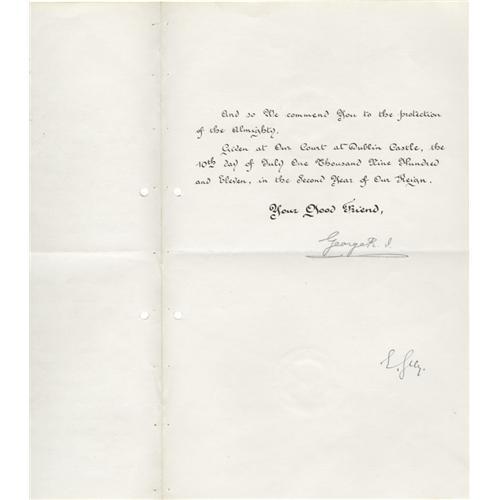 And so We commend You to the protection
of the Almighty.
Given at Our Court at Dublin Castle, the
10th day of July One Thousand Nine Hundred
and Eleven, in the Second Year of Our Reign.
Your Good Friend,
George R. I.
E. Grey.